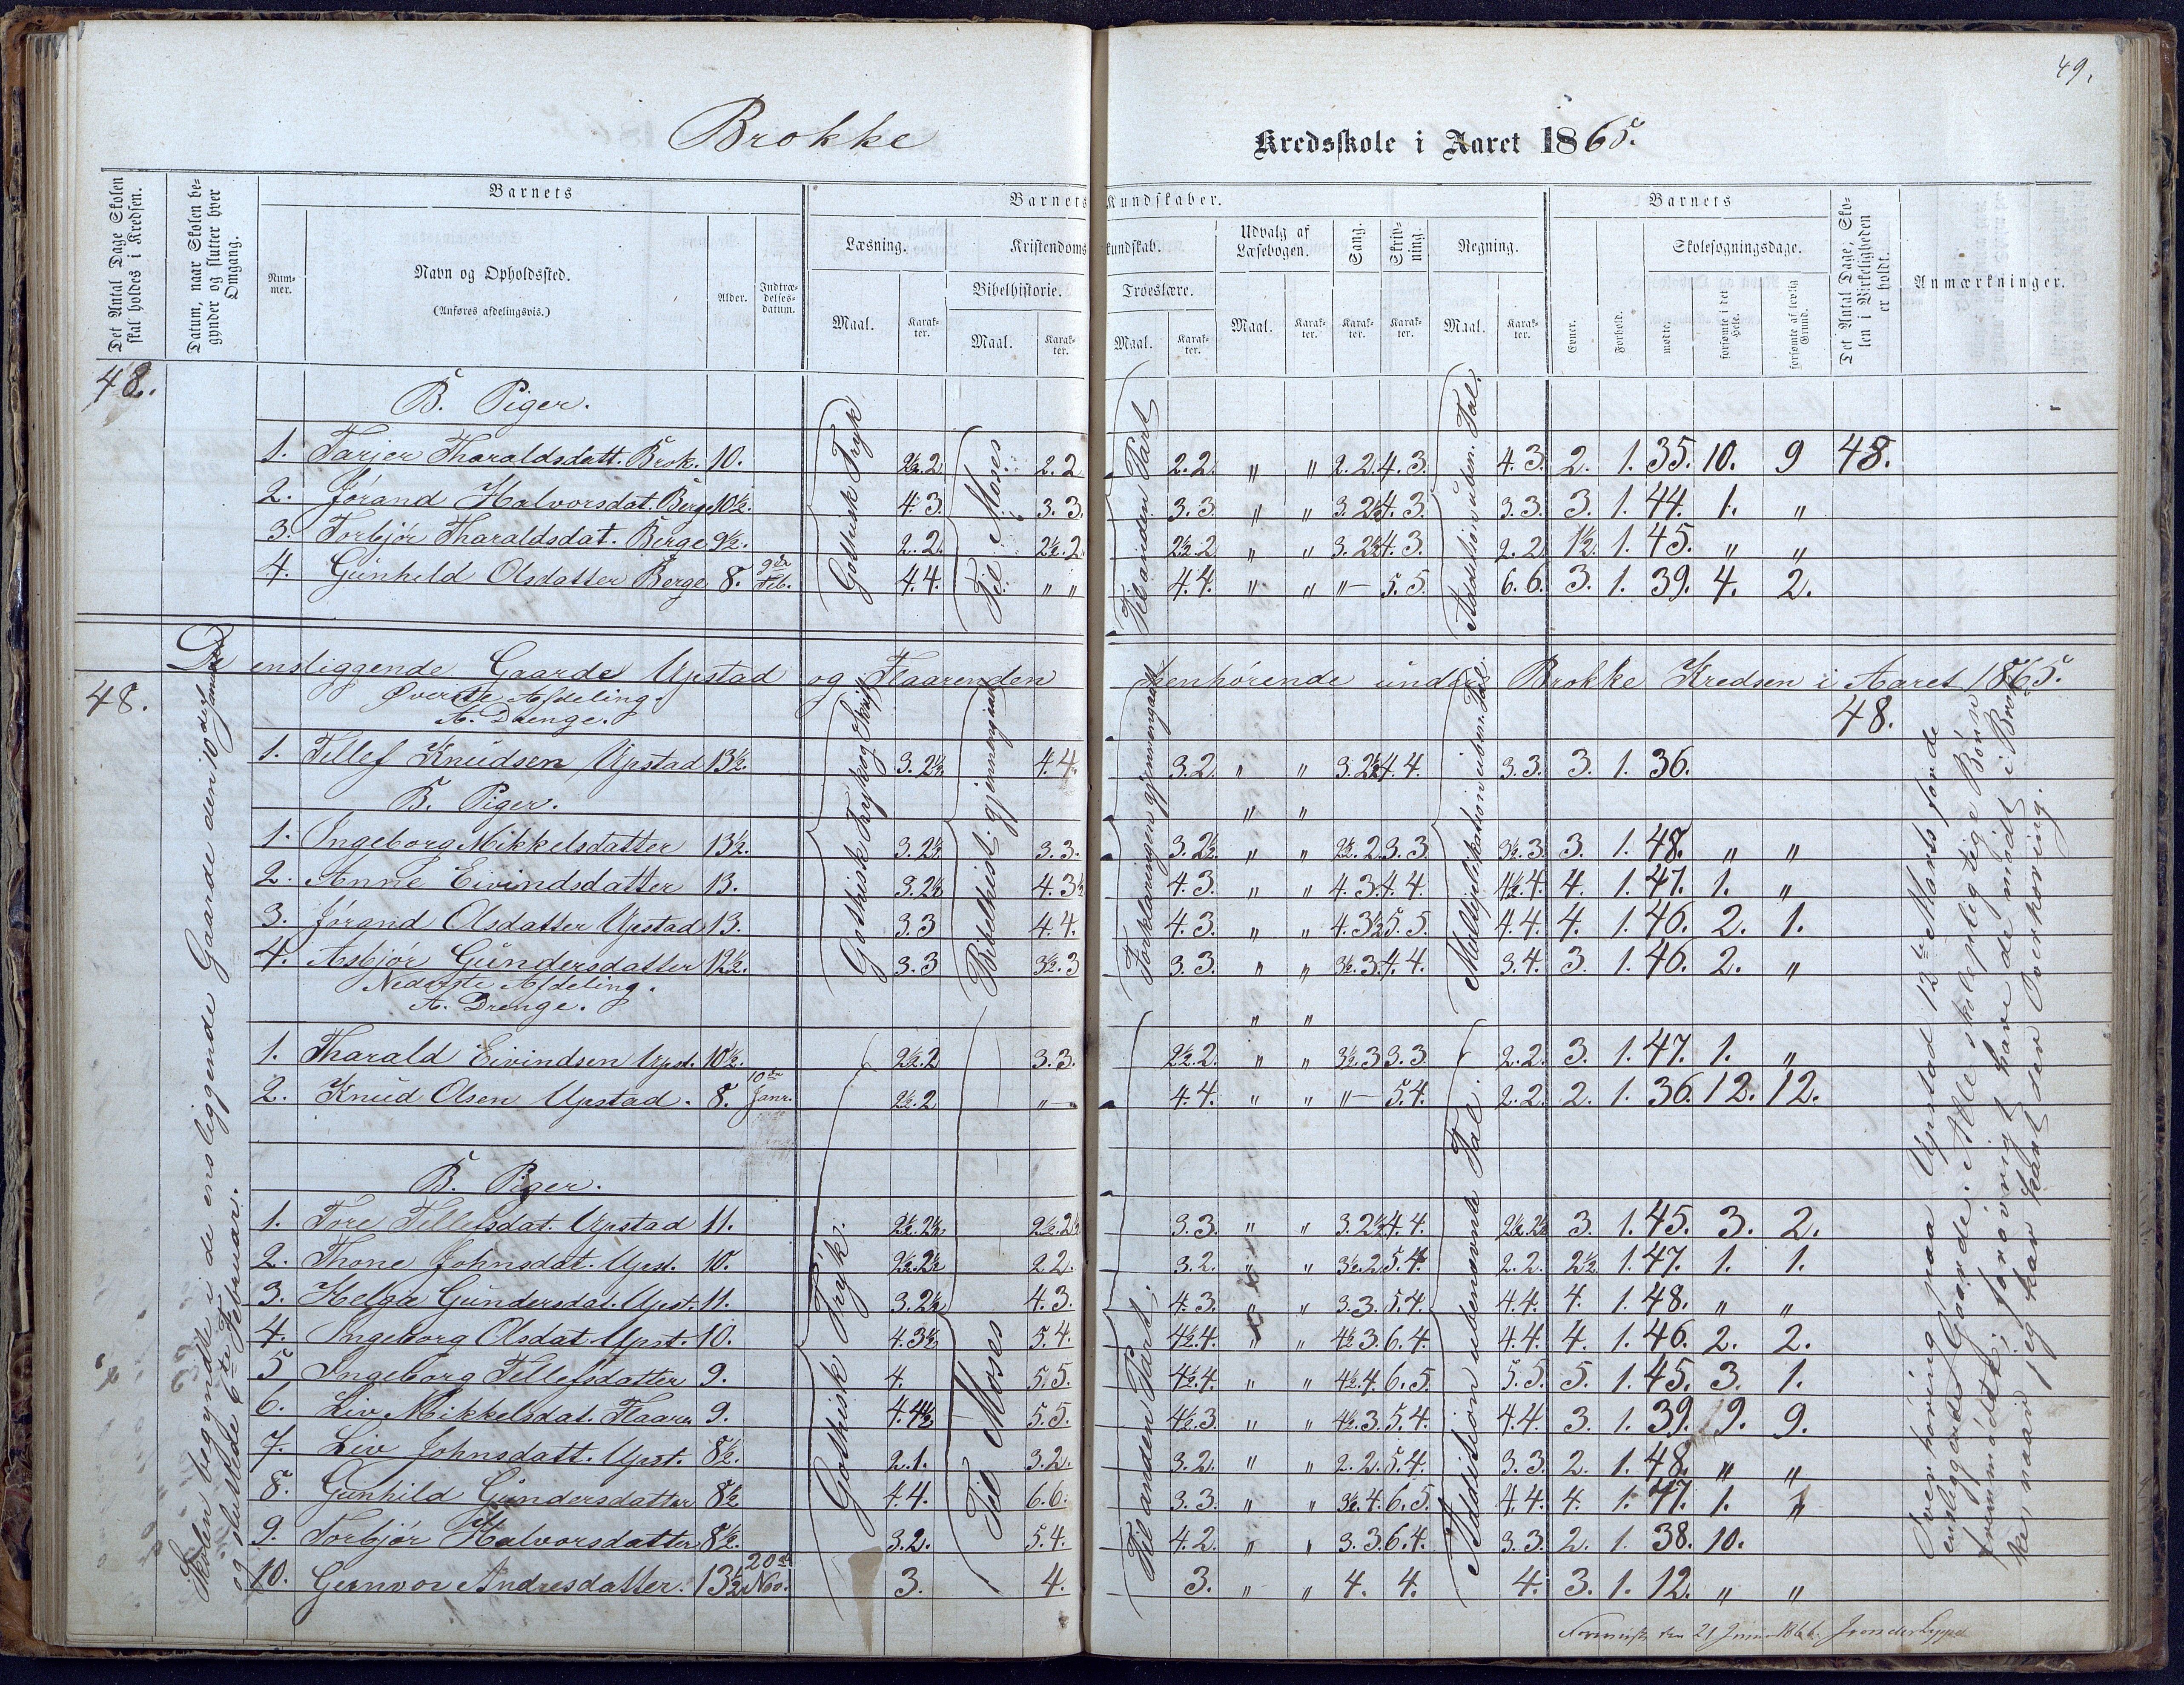 49.
Brokke Kredsskole i Aaret 1865.
Det Antal Dage Skolen skal holdes i Kredsen.
Datum, naar Skolen begynder og slutter hver Omgang.
Barnets
Nummer.
Navn og Opholdssted.
(Anføres afdelingsvis.)
Alder.
Indtrædelsesdatum.
Barnets Kundskaber.
Læsning.
Maal.
Karakter.
Kristendomskundskab.
Bibelhistorie.
Maal.
Karakter.
Troeslære.
Maal.
Karakter.
Udvalg af Læsebogen.
Maal.
Karakter.
Sang.
Karakter.
Skrivning.
Karakter.
Regning.
Maal.
Karakter.
Barnets
Evner.
Forhold.
Skolesøgningsdage.
mødte.
forsømte i det Hele.
forsømte af lovlig Grund.
Det Antal Dage, Skolen i Virkeligheden er holdt.
Anmærkninger.
48.
B. Piger.
Gothisk Tryk
Til Moses
Til anden Part
Addition uben. Tal.
1. Tarjer Tharaldsdatt. Brok. 10. 2½.2 2.2 2.2. " " 2.2. 4.3. 4.3. 2. 1. 35. 10. 9 48.
2. Jørand Halvorsdat. Berge 10½. 4.3. 3.3. 3.3. " " 3.2½ 4.3. 3.3. 3. 1. 44. 1. "
3. Torbjør Tharaldsdat. Berge 9½. 2.2. 2½.2 2½.2 " " 3.2½ 4.3. 2.2. 1½. 1. 45. " "
4. Gunhild Olsdatter Berge 8. 9de Feb. 4.4. " " 4.4. " " "— 5.5. 6.6. 3. 1. 39. 4. 2.
De ensliggende Gaarde Upstad og Flaarenden henhørende under Brokke Kredsen i Aaret 1865.
48.
48.
Skolen begyndte i de ensliggende Gaarde den 10de Januar
og sluttede 6te Februar.
Øverste Afdeling.
A. Drenge.
Gothisk Tryk og Skrift
Bibelhist. gjennemgaaet
Forklaringen gjennemgaaet
Multiplikation i uben. Tal.
1. Tellef Knudsen Upstad 13½. 3.2½ 4.4. 3.2. " " 3.2½ 4.4. 3.3. 3. 1. 36.
B. Piger. " "
1. Ingeborg Mikkelsdatter 13½. 3.2½ 3.3. 3.2½. " " 2½.2. 3.3. 3½.3. 3. 1. 48. " "
2. Anne Eivindsdatter 13. 3.2½ 4.3½ 4.3. " " 4.3. 4.4. 4½.4. 4. 1. 47. 1. "
3. Jørand Olsdatter Upstad 13. 3.3 4.4. 4.3. " " 4.3½ 5.5. 4.4. 4. 1. 46. 2. 1.
4. Asbjør Gundersdatter 12½. 3.3 3½.3 3.3. " " 3½.3. 4.4. 3.4. 3. 1. 46. 2. "
Nederste Afdeling.
A. Drenge. " "
1. Tharald Eivindsen Upst. 10½. 2½.2 3.3. 2½.2. " " 3½.3 3.3. 2.2. 3. 1. 47. 1. "
2. Knud Olsen Upstad. 8. 10de Janr. 2½.2 "— 4.4. " " "— 5.4. 2.2. 2. 1. 36. 12. 12.
B. Piger.
Gothisk Tryk.
Til Moses
Til anden Part.
Addition ubenævnte Tal.
1. Tore Tellefsdat. Upstad 11. 2½.2½ 2½.2½ 3.3. " " 3.2½ 4.4. 2½.2½ 3. 1. 45. 3. 2.
2. Thone Johnsdat. Upst. 10. 2½.2½ 2.2. 3.2. " " 3½.2 5.4. 2.2. 2½. 1. 47. 1. 1.
3. Helga Gundersdat. Upst. 11. 3.2½ 4.3. 4.3. " " 3.3. 5.4. 4.4. 4. 1. 48. " "
4. Ingeborg Olsdat. Upst. 10. 4.3½ 5.4. 4½.4. " " 4½.3. 6.4. 4.4. 4. 1. 46. 2. 2.
5 Ingeborg Tellefsdatter 9. 4. 5.5. 4½.4. " " 4½.4. 6.5. 5.5. 5. 1. 45. 3. 1.
6. Liv Mikkelsdat. Flaare. 9. 4.4½ 5.5. 4½.3. " " 4½.3. 5.4. 4.4. 3. 1. 39. 9. 9.
7. Liv Johnsdatt. Upst. 8½. 2.1. 3.2. 3.2. " " 2.2. 5.4. 3.3. 2. 1. 48. " "
8. Gunhild Gundersdatter 8½ 4.4. 6.6. 3.3. " " 3½.4. 6.5. 4.4. 4. 1. 47. 1. "
9. Torbjør Halvorsdatter 8½. 3.2. 5.4. 4.2. " " 3.3. 6.4. 3.3. 2. 1. 38. 10.
10. Gunvor Andresdatter. 13½ 20de Nov. 3. 4. 3. " " 4. 4. 4. 3. 1. 12. " "
Overhøring paa Upstad 13de Marts for de
ensliggende Gaarde. Alle skolepligtige Børn
fremmødte; forøvrigt have de mødt i Brok
ke, naar jeg har havt den Overhøring.
den 21 Juni 1866.